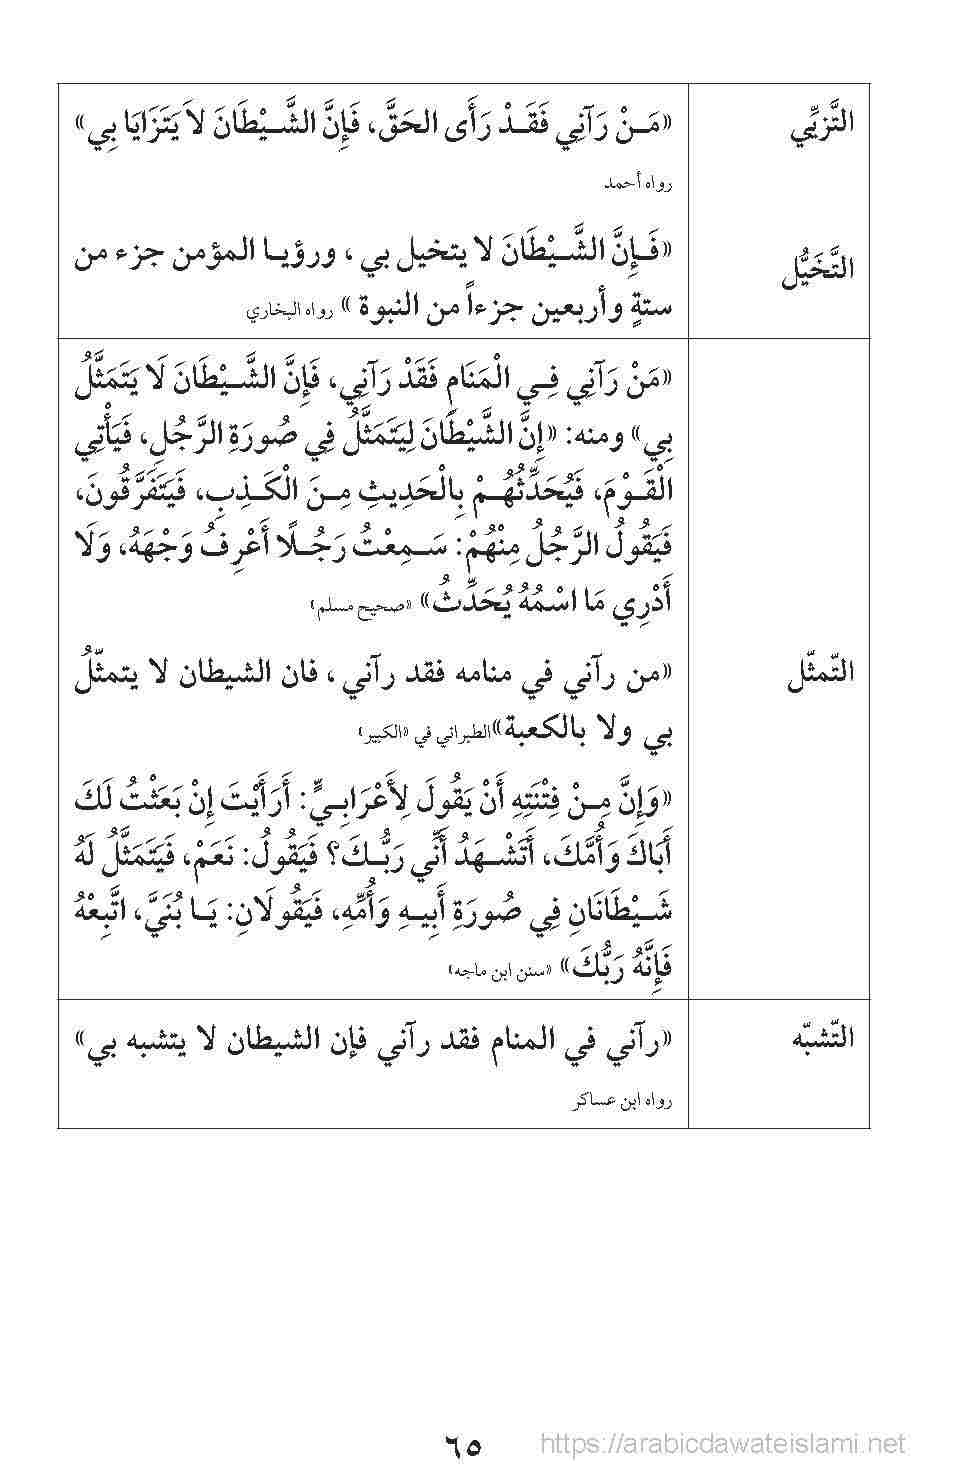 التَّزيِّي
«مَـنْ رَآنِي فَقَـدْ رَأَى الحَقَّ، فَإِنَّ الشَّـيْطَانَ لاَ يَتَزَايَا بِي»
رواه أحمد
التَّخَيُّل
«فَـإِنَّ الشَّـيْطَانَ لا يتخيل بي ، ورؤيـا المؤمن جزء من
ستةٍ وأربعين جزءاً من النبوة » رواه البخاري
«مَنْ رَآنِي فِـي الْمَنَامِ فَقَدْ رَآنِي، فَإِنَّ الشَّـيْطَانَ لَا يَتَمَثَّلُ
بِي» ومنه: «إِنَّ الشَّيْطَانَ لِيَتَمَثَّلُ فِي صُورَةِ الرَّجُلِ، فَيَأْتِي
الْقَـوْمَ، فَيُحَدِّثُهُـمْ بِالْحَدِيثِ مِـنَ الْكَـذِبِ، فَيَتَفَرَّقُونَ،
فَيَقُولُ الرَّجُلُ مِنْهُمْ: سَـمِعْتُ رَجُـلًا أَعْرِفُ وَجْهَهُ، وَلَا
أَدْرِي مَا اسْمُهُ يُحَدِّثُ» «صحيح مسلم»
التّمثّل
«من رآني في منامه فقد رآني ، فان الشيطان لا يتمثّلُ
بي ولا بالكعبة» الطبراني في «الكبير»
«وَإِنَّ مِـنْ فِتْنَتِهِ أَنْ يَقُولَ لِأَعْرَابِـيٍّ: أَرَأَيْتَ إِنْ بَعَثْتُ لَكَ
أَبَاكَ وَأُمَّكَ، أَتَشْـهَدُ أَنِّي رَبُّـكَ؟ فَيَقُولُ: نَعَمْ، فَيَتَمَثَّلُ لَهُ
شَـيْطَانَانِ فِي صُورَةِ أَبِيـهِ وَأُمِّهِ، فَيَقُولَانِ: يَـا بُنَيَّ، اتَّبِعْهُ
فَإِنَّهُ رَبُّكَ» «سنن ابن ماجه»
التّشبّه
«رآني في المنام فقد رآني فإن الشيطان لا يتشبه بي»
رواه ابن عساكر
٦٥
https://arabicdawateislami.net